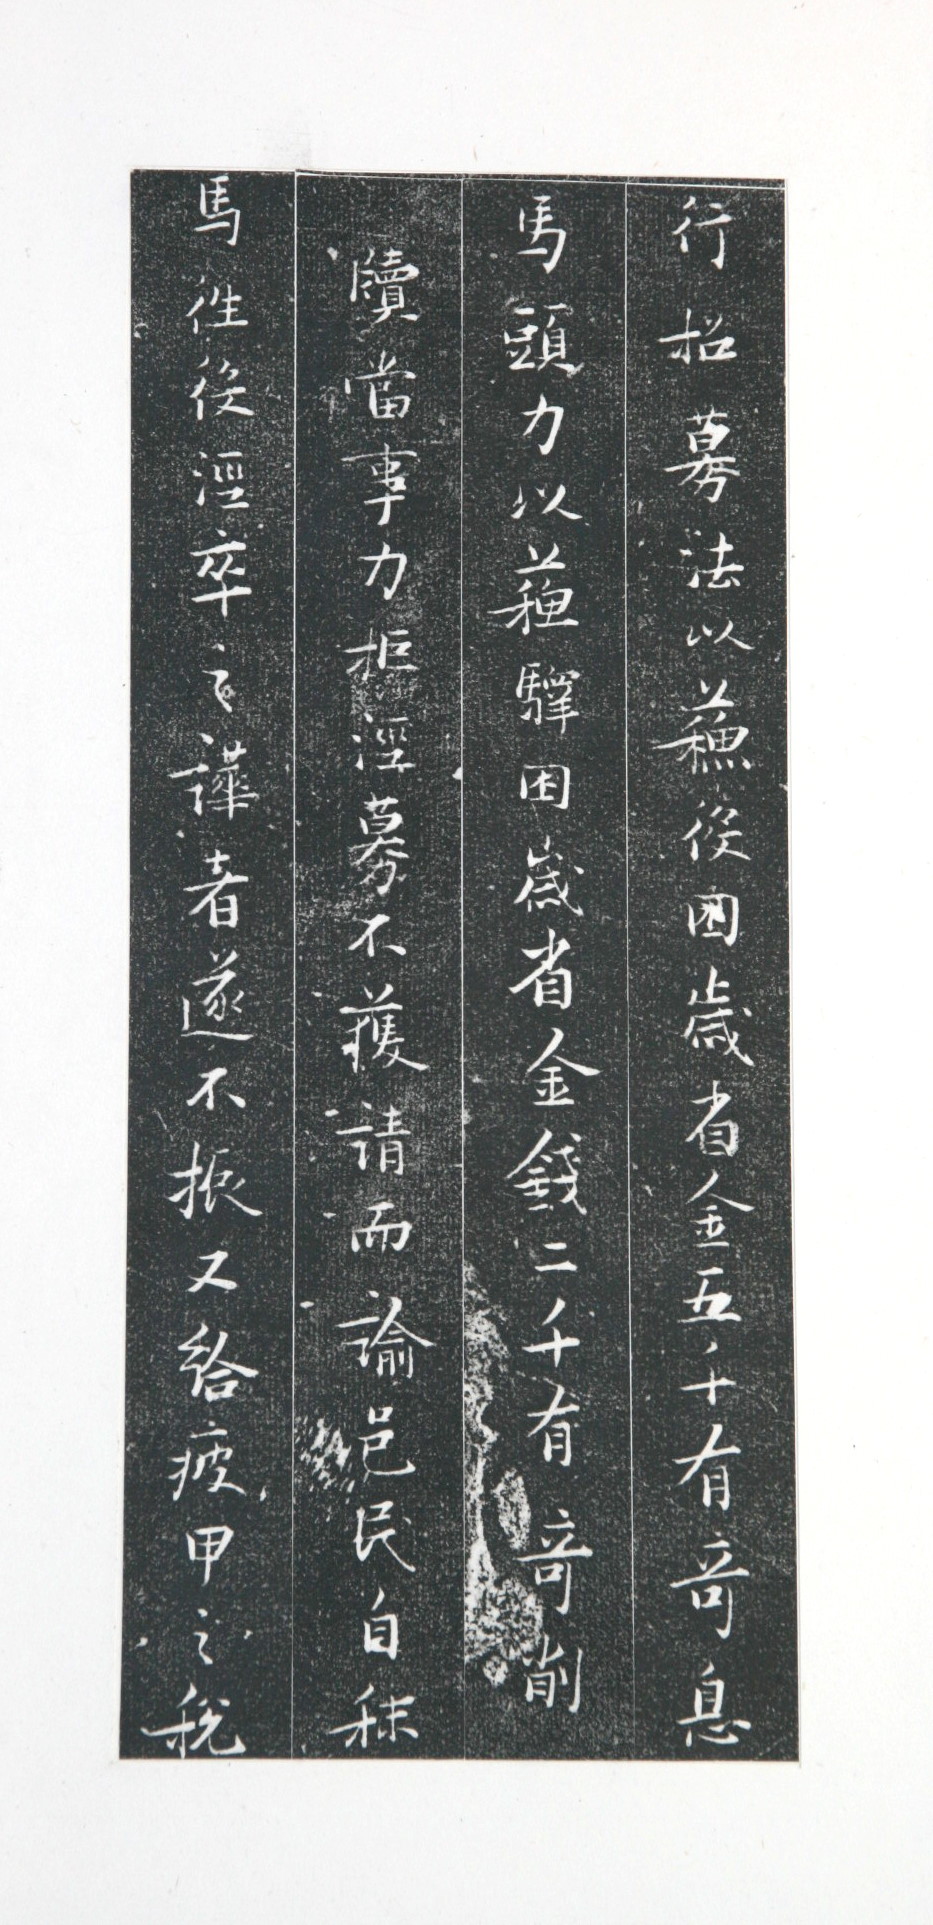 行招募法以蘓役困歲省金五千有奇息
馬頭力以蘓驛困歲省金錢二千有奇削
牘當事力拒涇募不獲請而諭邑民自秣
馬徃役涇卒之譁者遂不振又給疲甲之稅